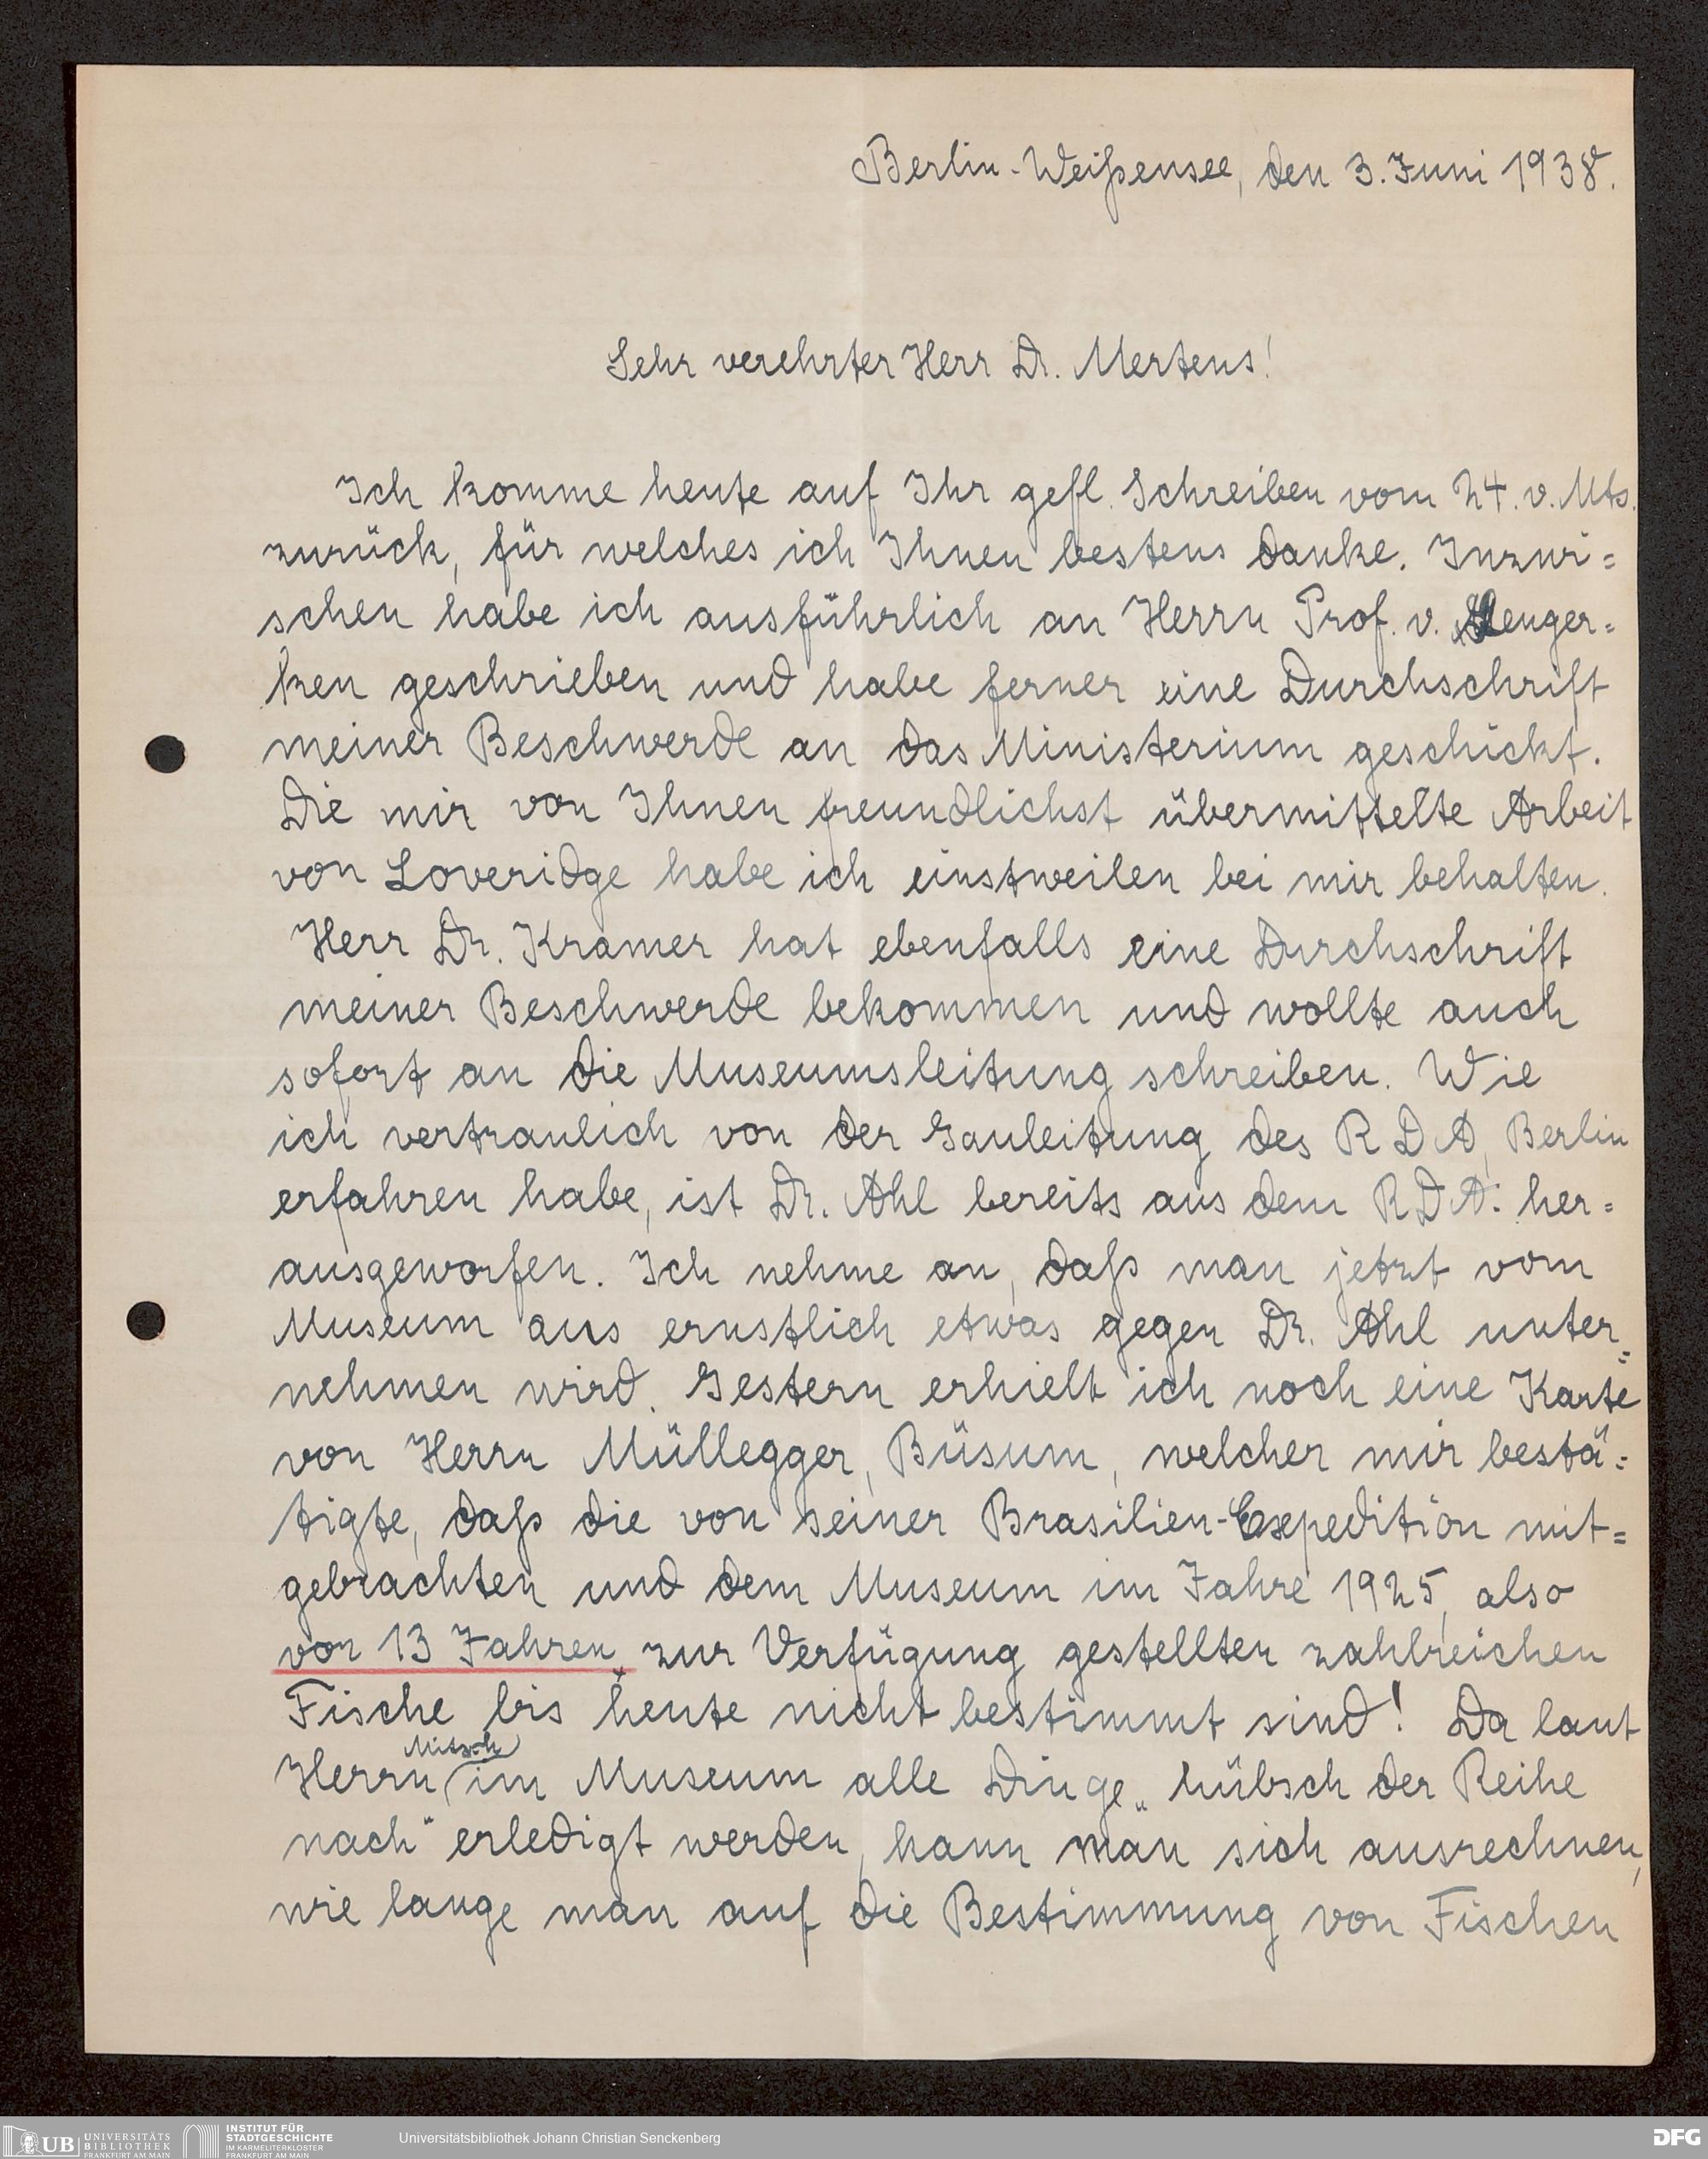 Berlin-Weißensee, den 3. Juni 1938.
Sehr verehrter Herr Dr. Mertens!
Ich komme heute auf Ihr gefl. Schreiben vom 24. v. Mts.
zurück, für welches ich Ihnen bestens danke. Inzwi=
schen habe ich ausführlich an Herrn Prof. v. Lenger=
ken geschrieben und habe ferner eine Durchschrift
meiner Beschwerde an das Ministerium geschickt.
Die mir von Ihnen freundlichst übermittelte Arbeit
von Loveridge habe ich einstweilen bei mir behalten.
Herr Dr. Kramer hat ebenfalls eine Durchschrift
meiner Beschwerde bekommen und wollte auch
sofort an die Museumsleitung schreiben. Wie
ich vertraulich von der Gauleitung des RDA, Berlin
erfahren habe, ist Dr. Ahl bereits aus dem RDA. her=
ausgeworfen. Ich nehme an, daß man jetzt vom
Museum aus ernstlich etwas gegen Dr. Ahl unter=
nehmen wird. Gestern erhielt ich noch eine Karte
von Herrn Müllegger, Büsum, welcher mir bestä=
tigte, daß die von seiner Brasilien-Expedition mit=
gebrachten und dem Museum im Jahre 1925, also
vor 13 Jahren, zur Verfügung gestellten zahlreichen
Fische bis heute nicht bestimmt sind! Da laut
Herrn Mitsch im Museum alle Dinge „hübsch der Reihe
nach“ erledigt werden, kann man sich ausrechnen,
wie lange man auf die Bestimmung von Fischen
UB UNIVERSITÄTS
BIBLIOTHEK
FRANKFURT AM MAIN
INSTITUT FÜR
STADTGESCHICHTE
IM KARMELITERKLOSTER
FRANKFURT AM MAIN
Universitätsbibliothek Johann Christian Senckenberg
DFG